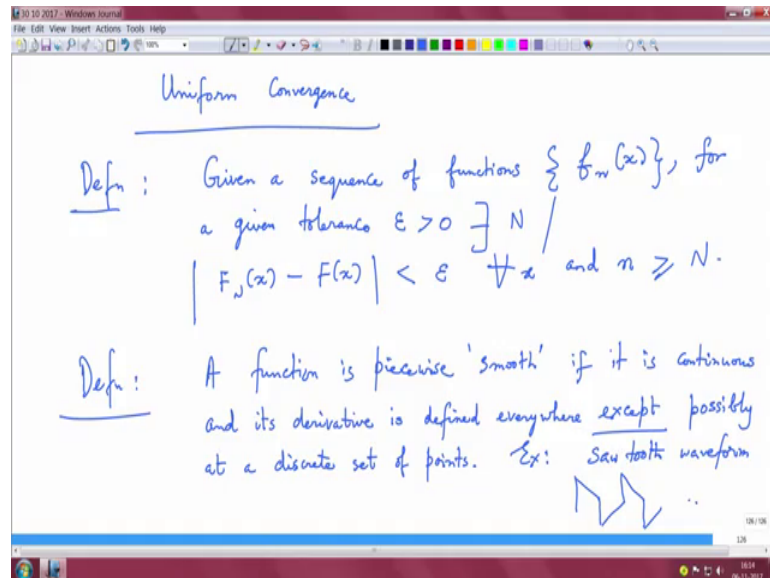 30 10 2017 - Windows Journal
File Edit View Insert Actions Tools Help
100%
Uniform Convergence
Defn : Given a sequence of functions { f_n (x) }, for
a given tolerance ε > 0 ∃ N /
| F_N (x) - F(x) | < ε ∀ x and n ⩾ N.
Defn : A function is piecewise 'smooth' if it is continuous
and its derivative is defined everywhere except possibly
at a discrete set of points. Ex: Saw tooth waveform
..
126/126
126
16:14
06-11-2017